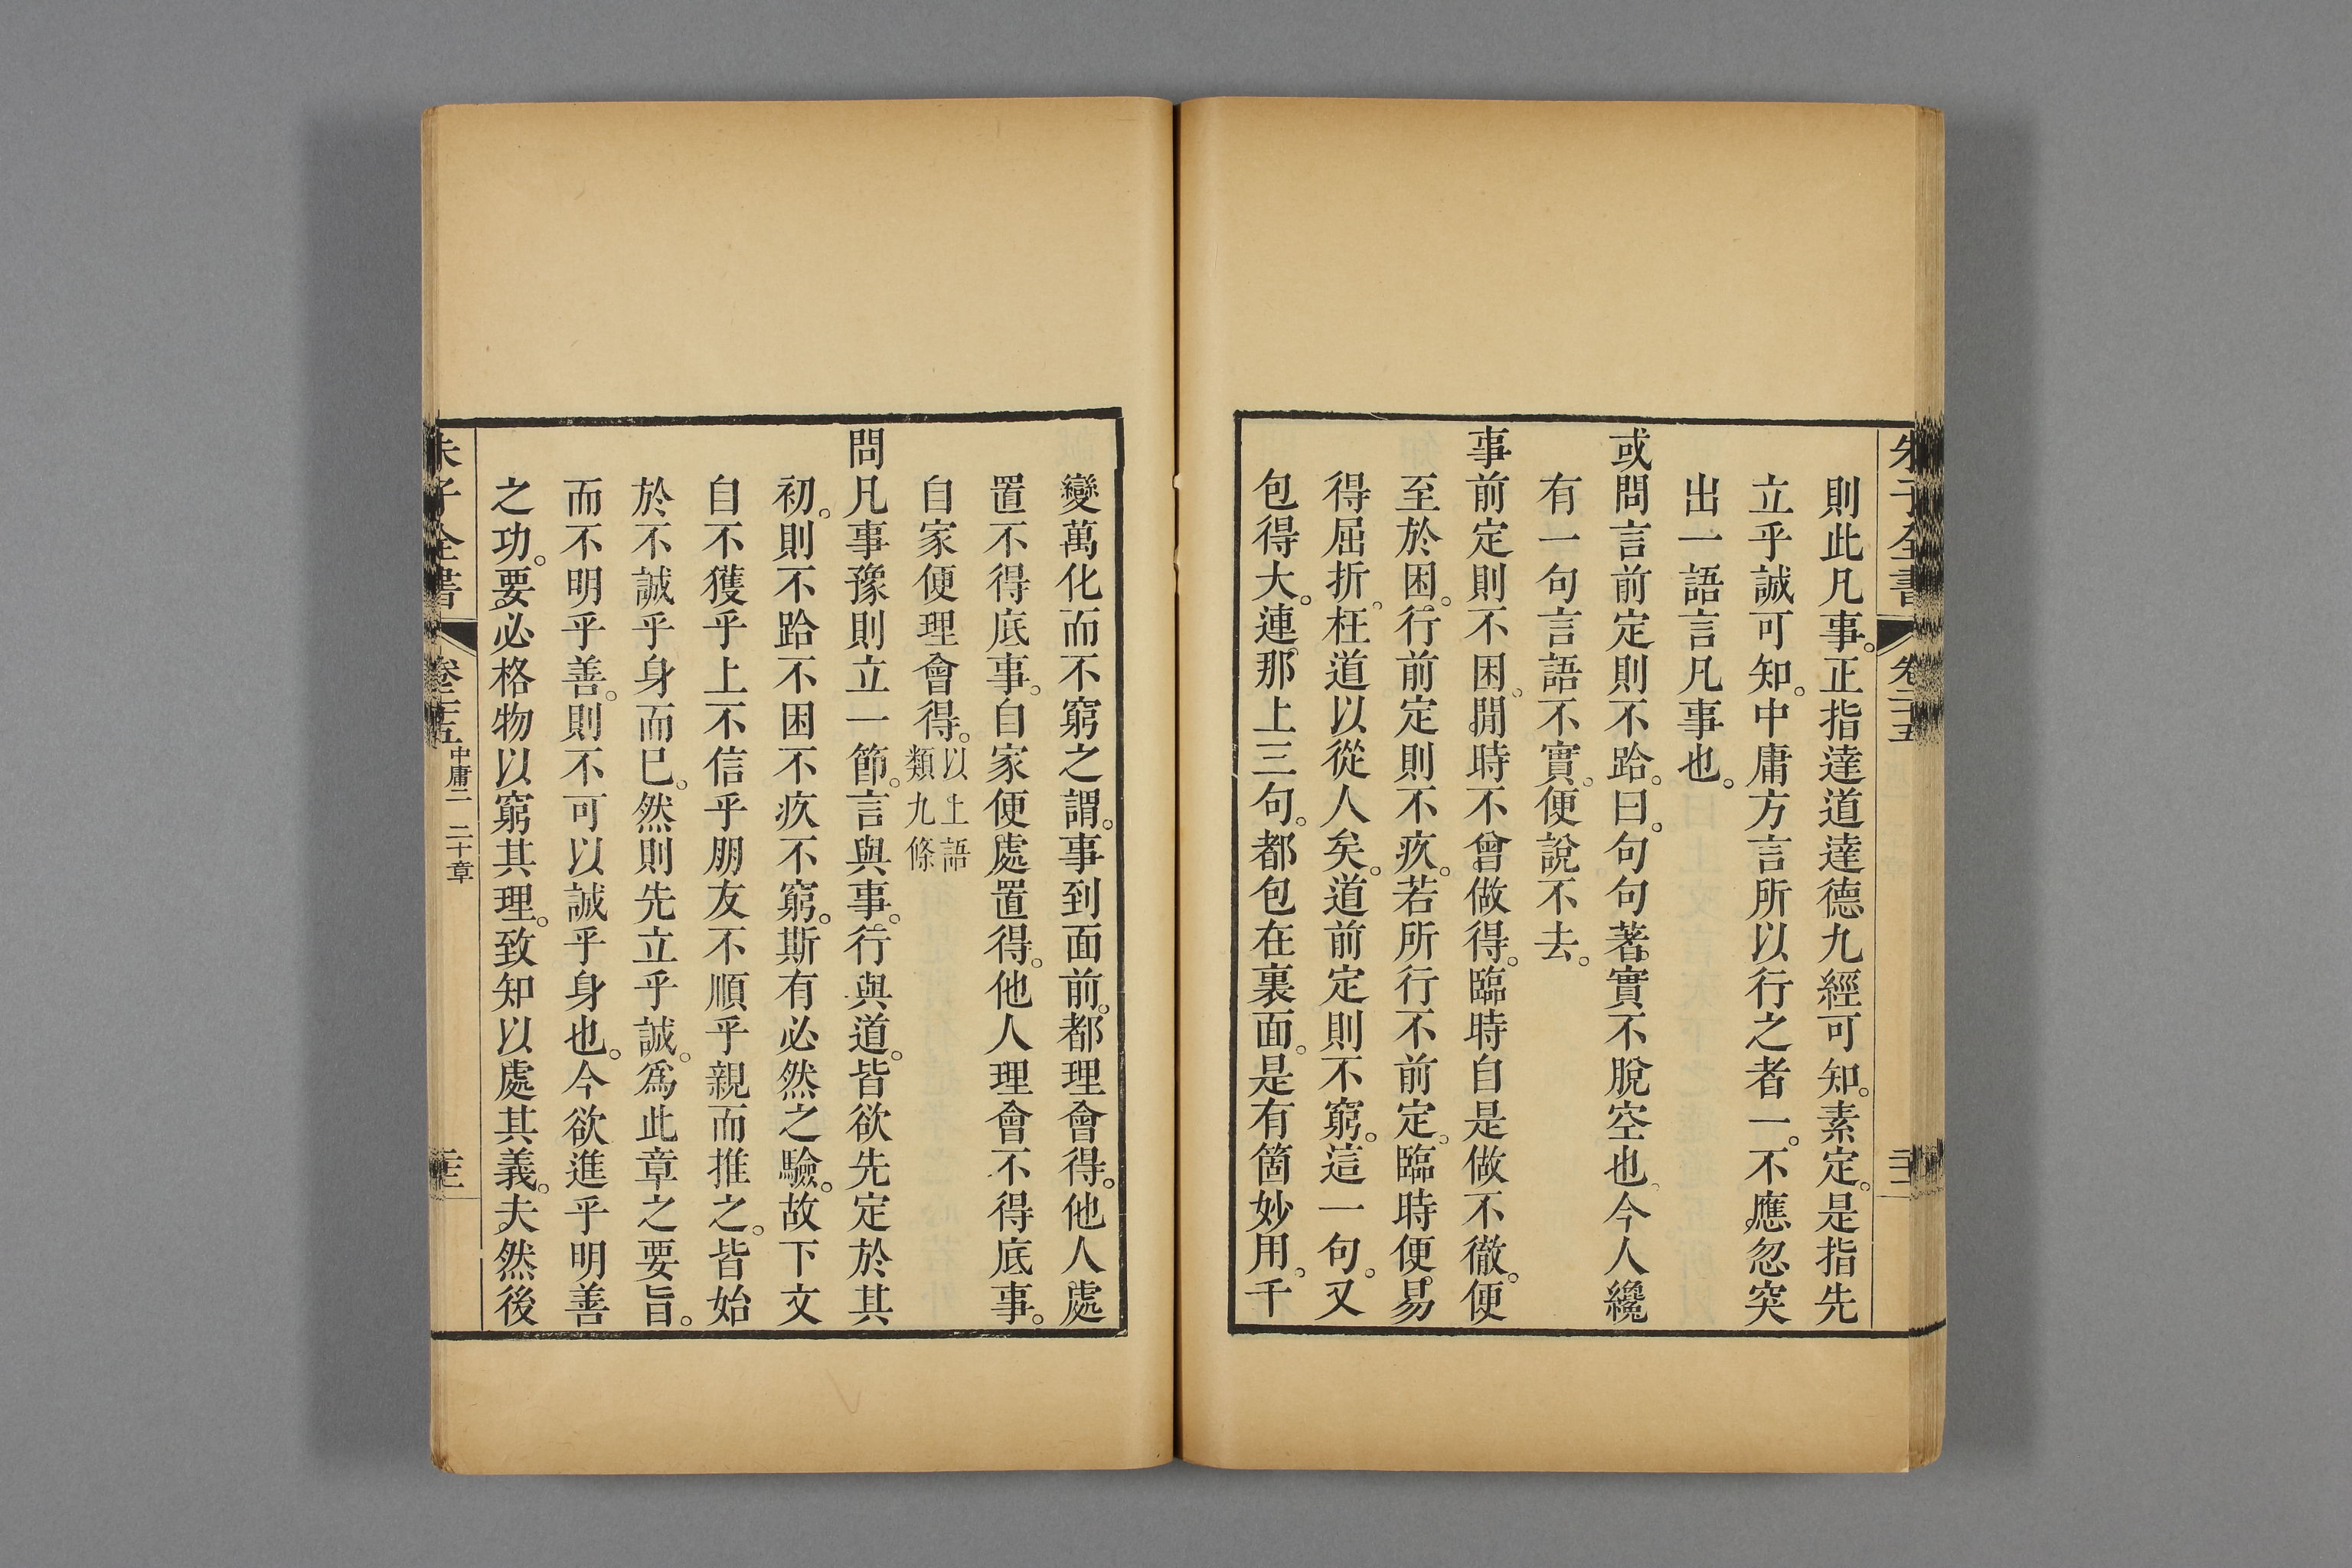 朱子全書 卷二十五
則此凡事。正指達道達德九經可知。素定。是指先
立乎誠可知。中庸方言所以行之者一。不應忽突
出一語言凡事也。
或問言前定則不跲。曰。句句著實不脫空也。今人纔
有一句言語不實。便說不去。
事前定則不困。閒時不曾做得。臨時自是做不徹。便
至於困。行前定則不疚。若所行不前定。臨時便易
得屈折。枉道以從人矣。道前定則不窮。這一句。又
包得大。連那上三句。都包在裏面。是有箇妙用。千
變萬化而不窮之謂。事到面前。都理會得。他人處
置不得底事。自家便處置得。他人理會不得底事。
自家便理會得。以上語
類九條
問凡事豫則立一節。言與事。行與道。皆欲先定於其
初。則不跲不困不疚不窮。斯有必然之驗。故下文
自不獲乎上不信乎朋友不順乎親而推之。皆始
於不誠乎身而已。然則先立乎誠。爲此章之要旨。
而不明乎善。則不可以誠乎身也。今欲進乎明善
之功。要必格物以窮其理。致知以處其義。夫然後
朱子全書 卷二十五 中庸二 二十章